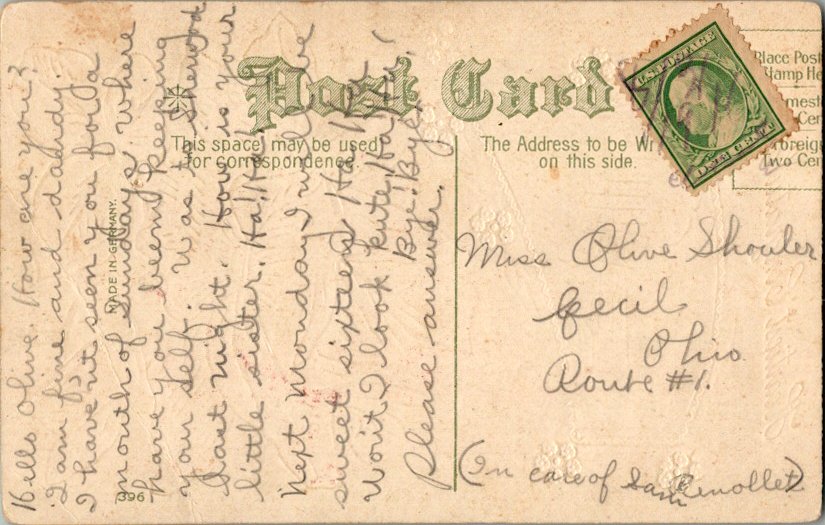 Post Card
This space may be used
for correspondence
The Address to be Wri
on this side.
Place Post
Stamp He
omest
Cen
oreig
Two Cen
U.S. POSTAGE
ONE CENT
MADE IN GERMANY.
396
Hello Olive. How are you?
I am fine and dandy.
I have n't seen you for a
month of Sundays. Where
have you been keeping
your self. Was to Sherwood
last night. How is your
little sister. Ha! Ha!
Next Monday I will be
sweet sixteen Ha! Ha!
Won't I look kute, Ha! Ha!
Bye! Bye!
Please answer.
Miss Olive Shouler
Cecil
Ohio
Route #1.
(In care of Sam Renollet)